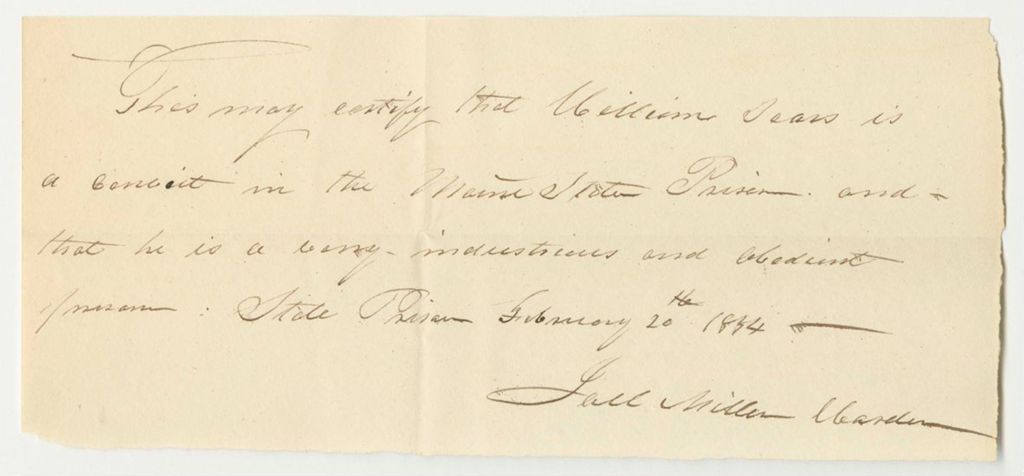 This may certify that William Sears is
a convict in the Maine State Prison and
that he is a very industrious and obedient
prisoner. State Prison February 20th 1834
Joel Miller Warden